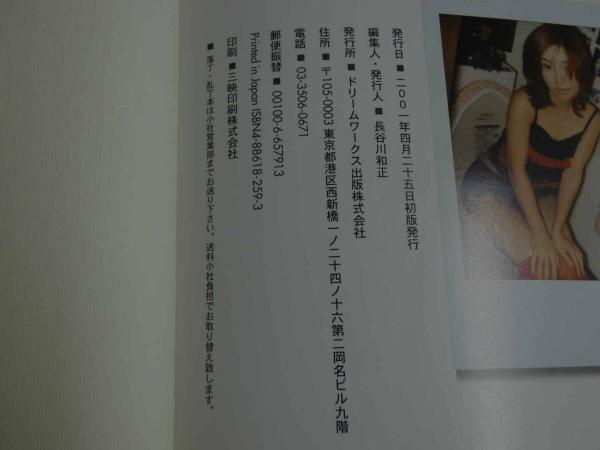 発行日■二〇〇一年四月二十五日初版発行
編集人・発行人■長谷川和正
発行所■ドリームワークス出版株式会社
住所■〒105-0003 東京都港区西新橋一ノ二十四ノ十六第二岡名ビル九階
電話■03-3506-0671
郵便振替■00100-6-657913
Printed in Japan ISBN4-88618-259-3
印刷■三映印刷株式会社
■落丁・乱丁本は小社営業部までお送り下さい。送料小社負担でお取り替え致します。